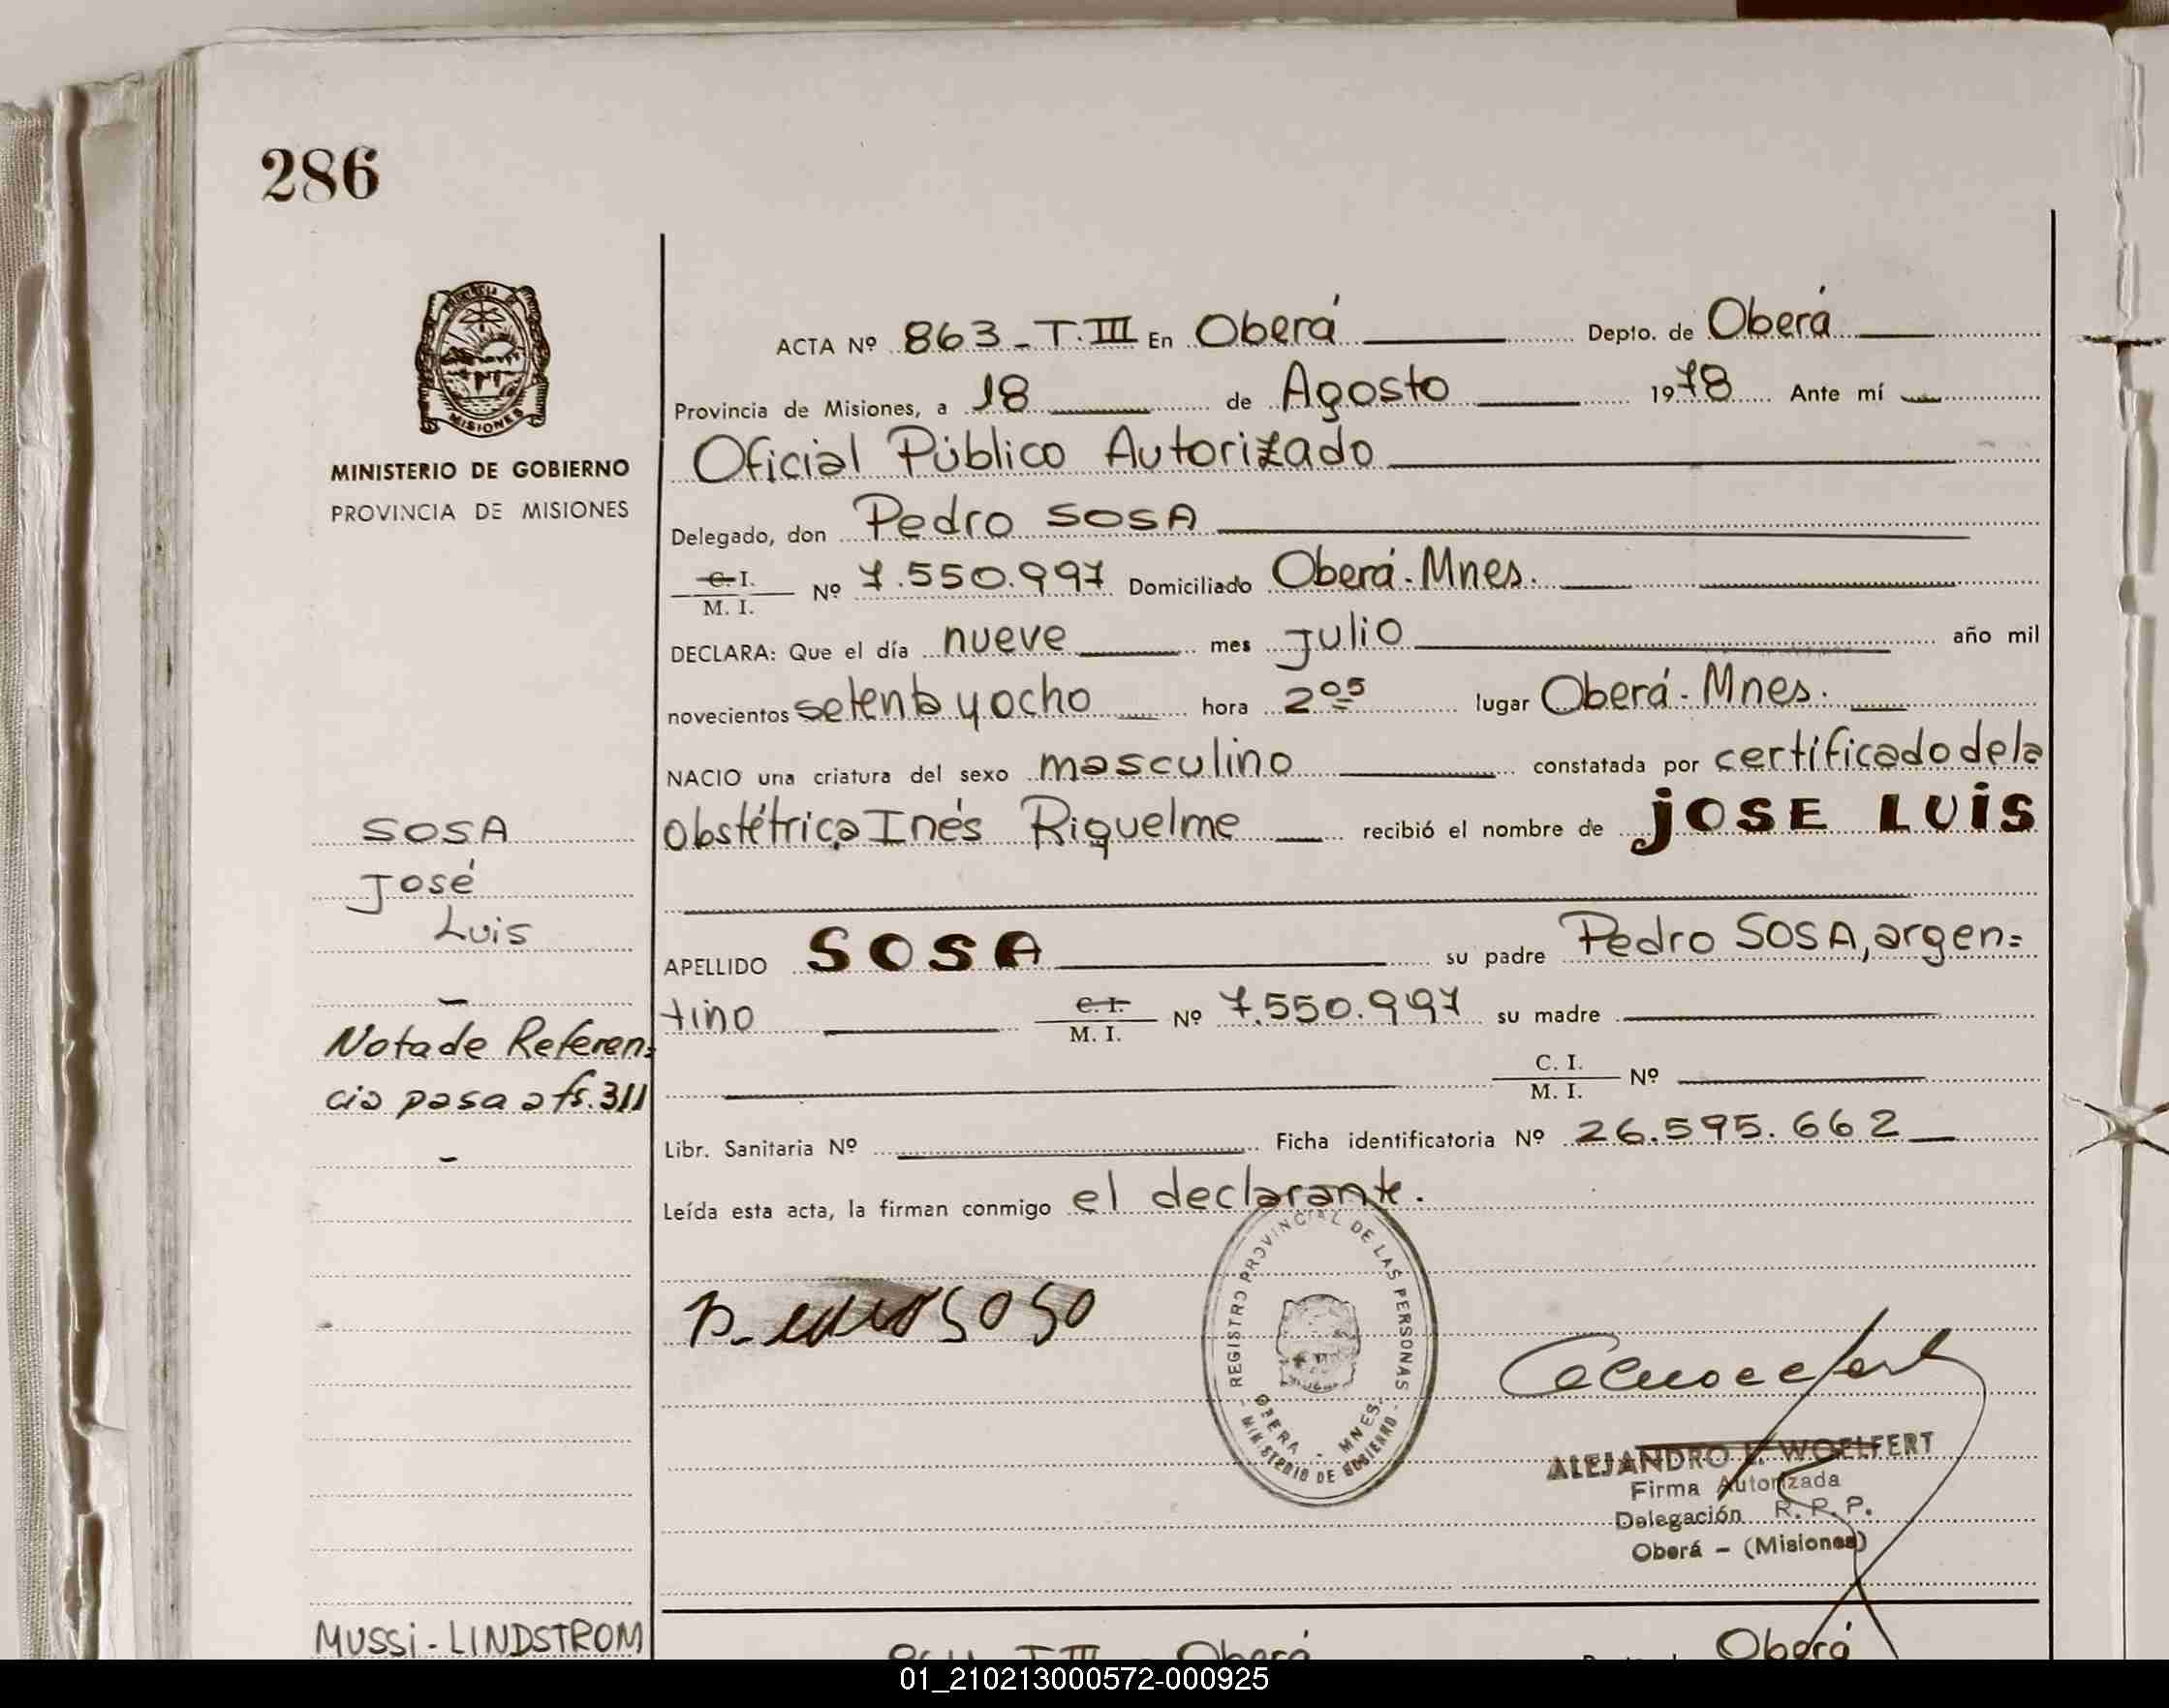 286
PROVINCIA DE
MISIONES
MINISTERIO DE GOBIERNO
PROVINCIA DE MISIONES
ACTA Nº 863 - T. III En Oberá Depto. de Oberá
Provincia de Misiones, a 18 de Agosto 1978 Ante mí
Oficial Público Autorizado
Delegado, don Pedro SOSA
C. I.
M. I. Nº 7.550.997 Domiciliado Oberá - Mnes.
DECLARA: Que el día nueve mes julio año mil
novecientos setenta y ocho hora 2 05 lugar Oberá - Mnes.
NACIO una criatura del sexo masculino constatada por certificado de la
Obstétrica Inés Riquelme recibió el nombre de JOSE LUIS
APELLIDO SOSA su padre Pedro SOSA, argen=
tino C. I.
M. I. Nº 7.550.997 su madre
C. I.
M. I. Nº
Libr. Sanitaria Nº Ficha identificatoria Nº 26.595.662
Leída esta acta, la firman conmigo el declarante.
SOSA
José
Luis
Nota de Referen=
cia pasa a fs. 311
REGISTRO PROVINCIAL DE LAS PERSONAS
OBERA - MNES.
- MINISTERIO DE GOBIERNO -
ALEJANDRO E. WOELFERT
Firma Autorizada
Delegación R. P. P.
Oberá - (Misiones)
MUSSI - LINDSTROM
Oberá Oberá
01_210213000572-000925